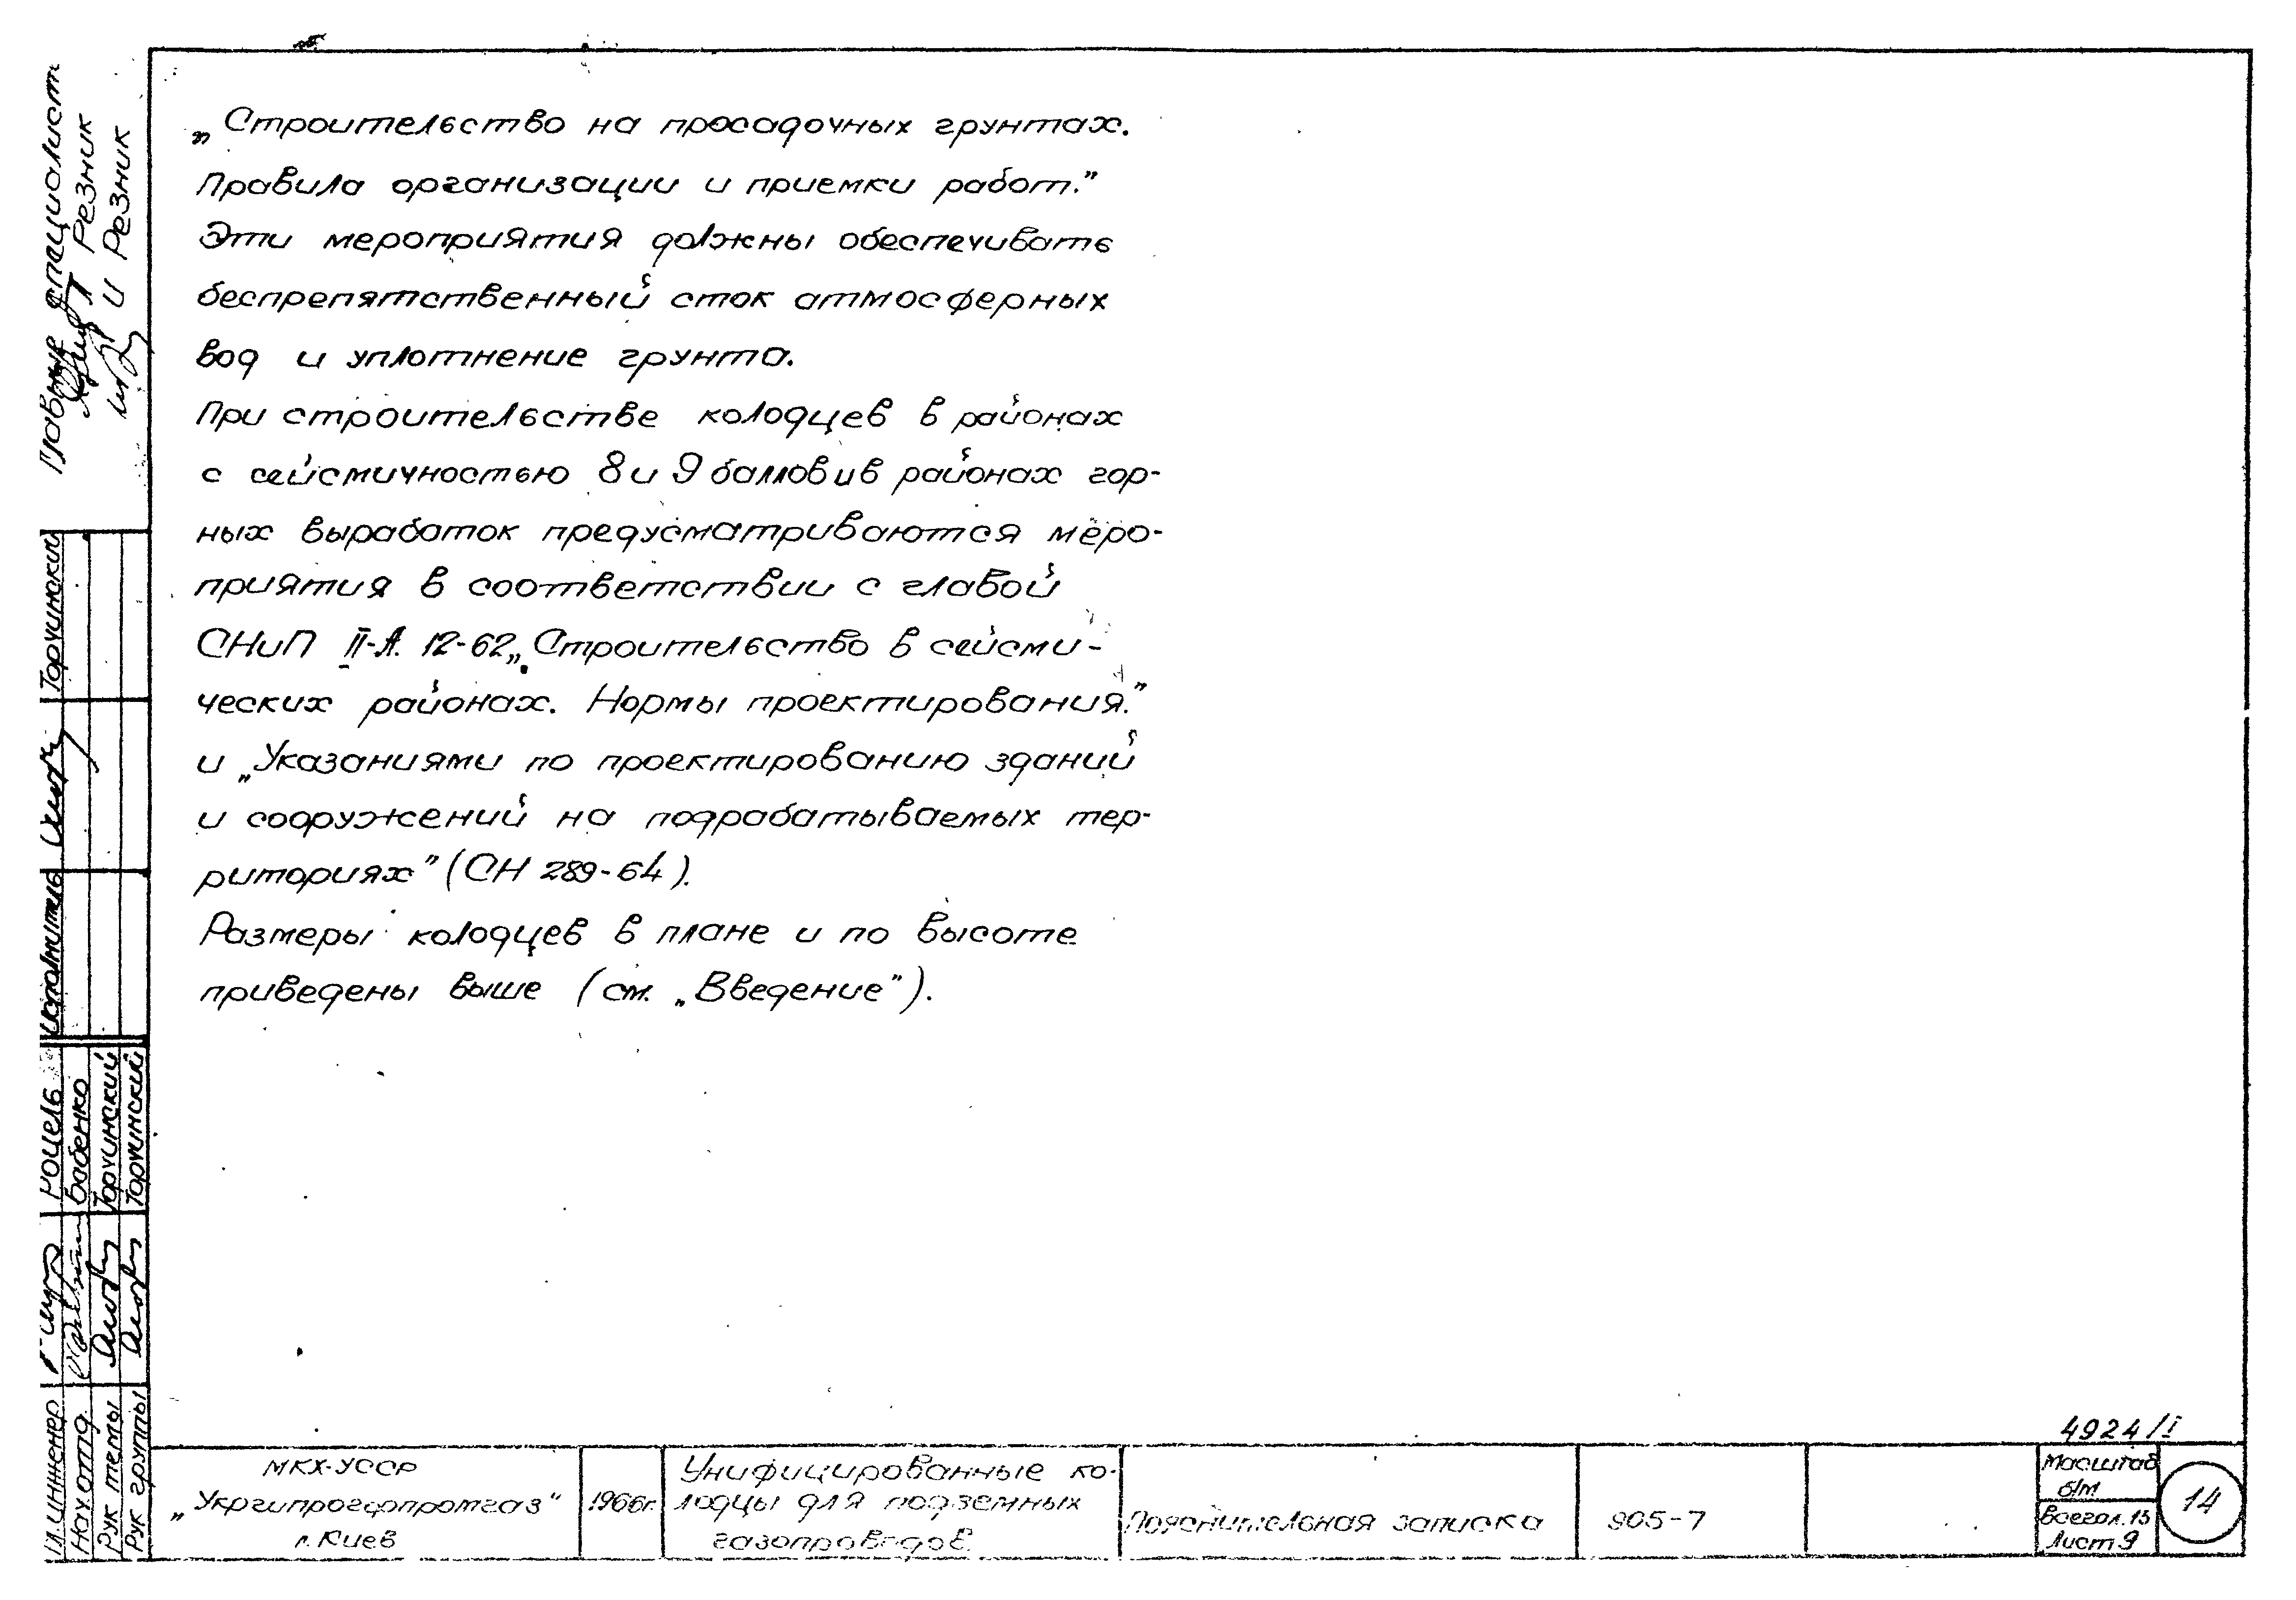 „Строительство на просадочных грунтах.
Правила организации и приемки работ."
Эти мероприятия должны обеспечивать
беспрепятственный сток атмосферных
вод и уплотнение грунта.
При строительстве колодцев в районах
с сейсмичностью 8 и 9 баллов и в районах гор-
ных выработок предусматриваются меро-
приятия в соответствии с главой
СНиП II-А. 12-62 „Строительство в сейсми-
ческих районах. Нормы проектирования."
и „Указаниями по проектированию зданий
и сооружений на подрабатываемых тер-
риториях" (СН 289-64).
Размеры колодцев в плане и по высоте
приведены выше (см. „Введение").
4924/I
МКХ-УССР
„Укргипрогорпромгаз"
г. Киев
1966г.
Унифицированные ко-
лодцы для подземных
газопроводов
Пояснительная записка
905-7
Масштаб
б/м
Всего л. 15
Лист 9
14
Главные специалист
Резник
И Резник
Торчинский
исполнитель
Гл. инженер
Роцель
Нач отд.
Бабенко
Рук темы
Торчинский
Рук группы
Торчинский